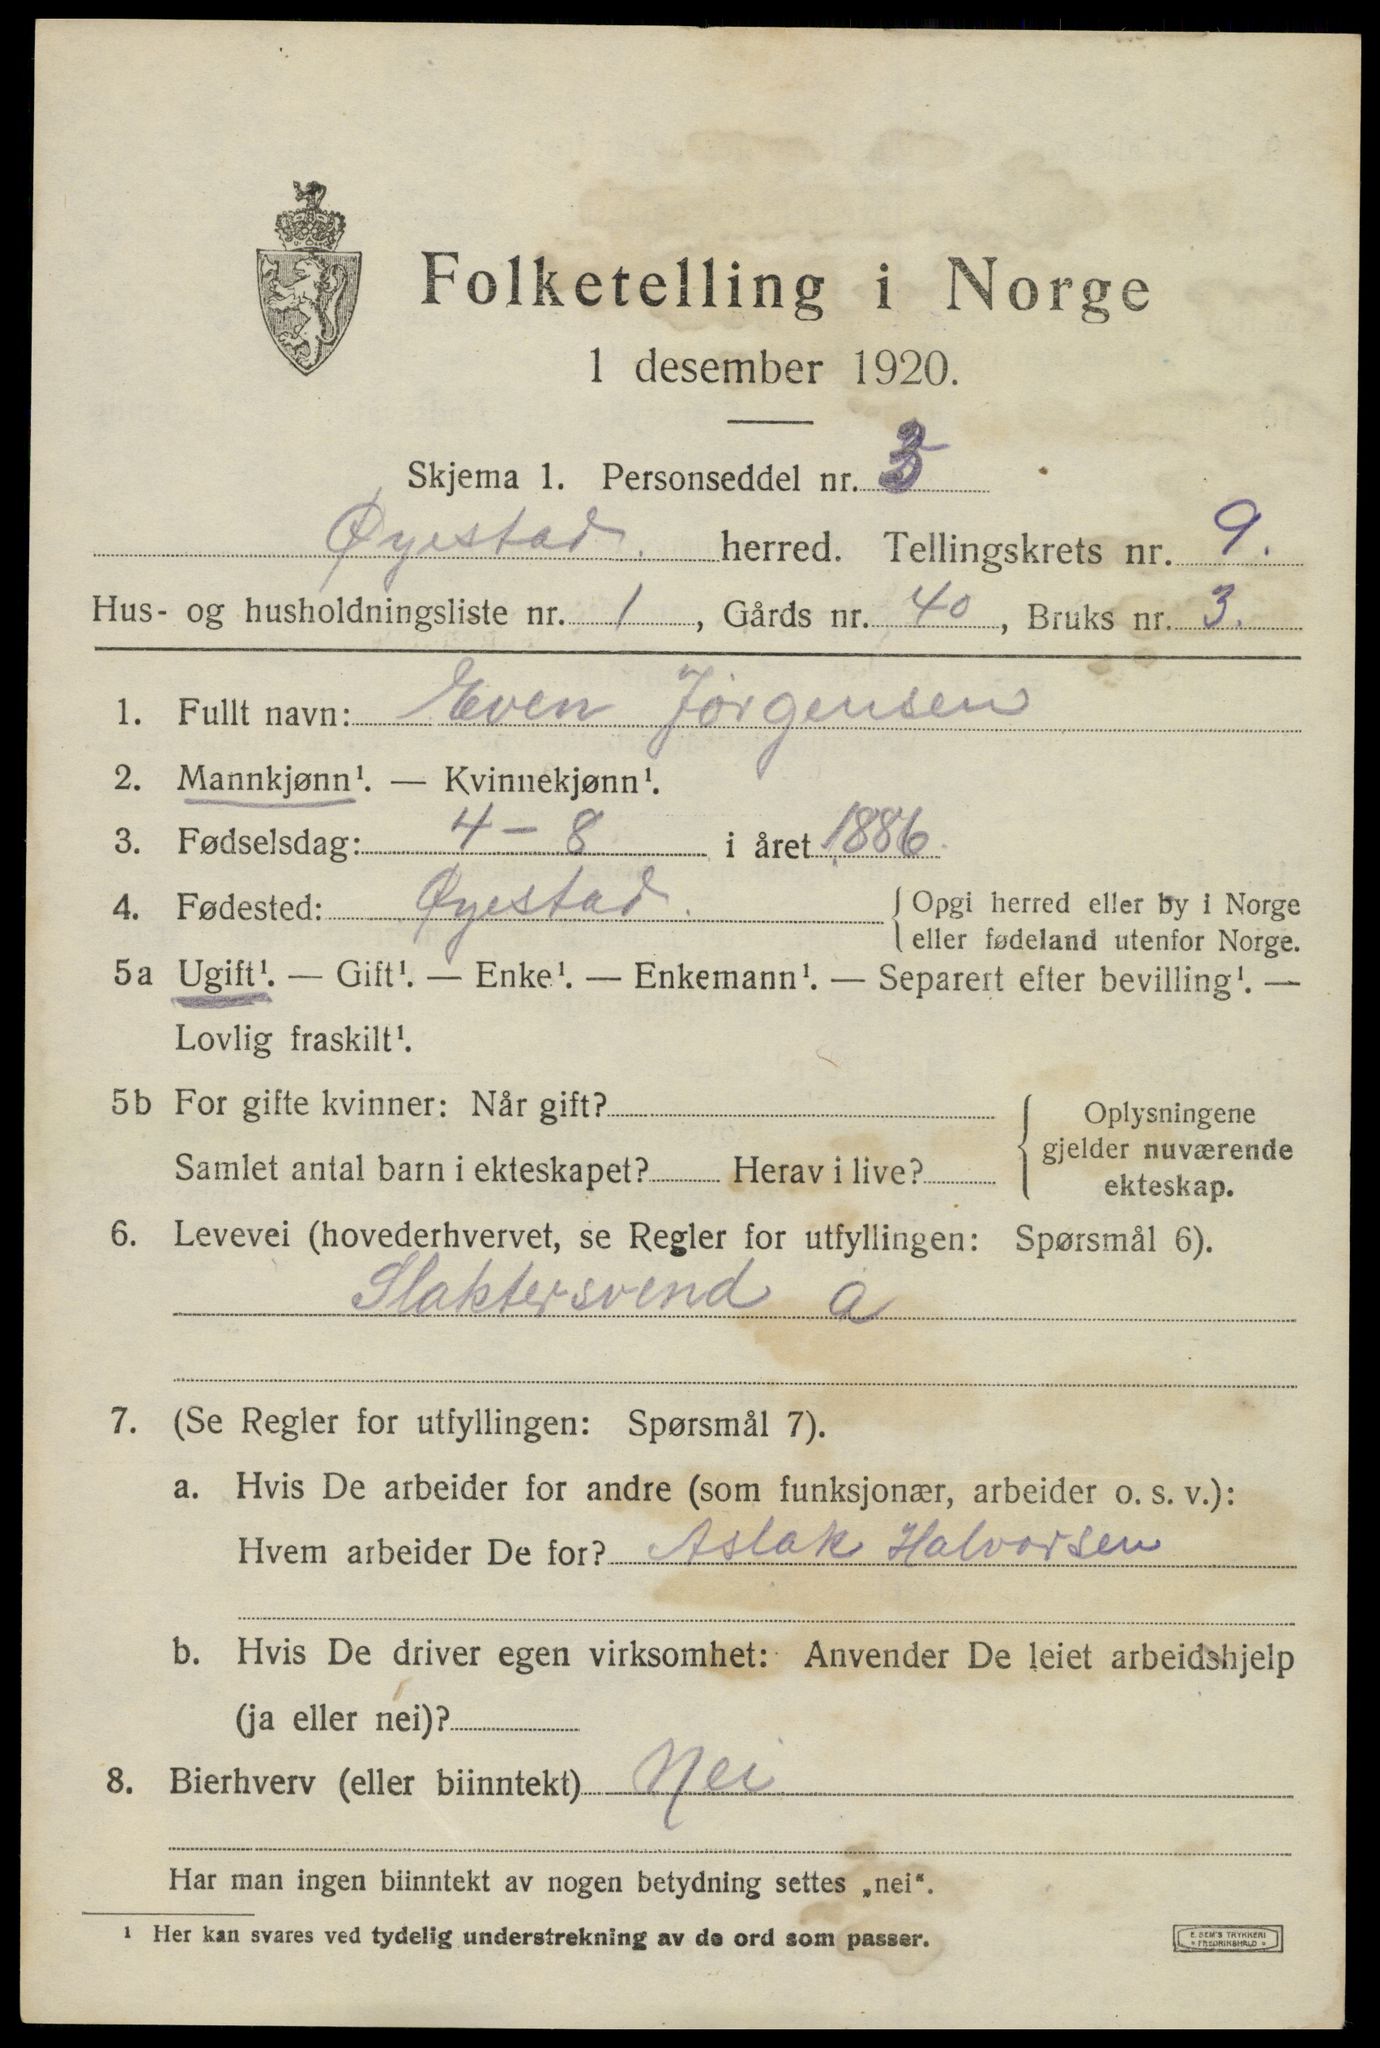 Folketelling i Norge
1 desember 1920.
Skjema 1. Personseddel nr. 3
Øyestad. herred. Tellingskrets nr. 9.
Hus- og husholdningsliste nr. 1, Gårds nr. 40, Bruks nr. 3.
1. Fullt navn: Even Jörgensen
2. Mannkjønn¹. — Kvinnekjønn¹.
3. Fødselsdag: 4 – 8 i året 1886.
4. Fødested: Øyestad. { Opgi herred eller by i Norge
eller fødeland utenfor Norge.
5a Ugift¹. — Gift¹. — Enke¹. — Enkemann¹. — Separert efter bevilling¹. —
Lovlig fraskilt¹.
5b For gifte kvinner: Når gift?
Samlet antal barn i ekteskapet? Herav i live?
{ Oplysningene
gjelder nuværende
ekteskap.
6. Levevei (hovederhvervet, se Regler for utfyllingen: Spørsmål 6).
Slaktersvend a
7. (Se Regler for utfyllingen: Spørsmål 7).
a. Hvis De arbeider for andre (som funksjonær, arbeider o. s. v.):
Hvem arbeider De for? Aslak Halvorsen
b. Hvis De driver egen virksomhet: Anvender De leiet arbeidshjelp
(ja eller nei)?
8. Bierhverv (eller biinntekt) Nei
Har man ingen biinntekt av nogen betydning settes „nei“.
¹ Her kan svares ved tydelig understrekning av de ord som passer.
E. SEM'S TRYKKERI
* FREDRIKSHALD *